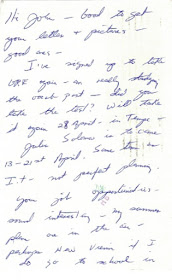 Hi John — Good to get
your letter & pictures —
good ones —
I've signed up to take
GRE again — am really studying
the vocab part — did you
take the test? Will take
it again 28 April — in Tampa —
John is to come
13–21st April. Some time in
— not perfect planning.
Your job
sound interesting — my summer
plans are in the air —
perhaps New if I
do go to school in